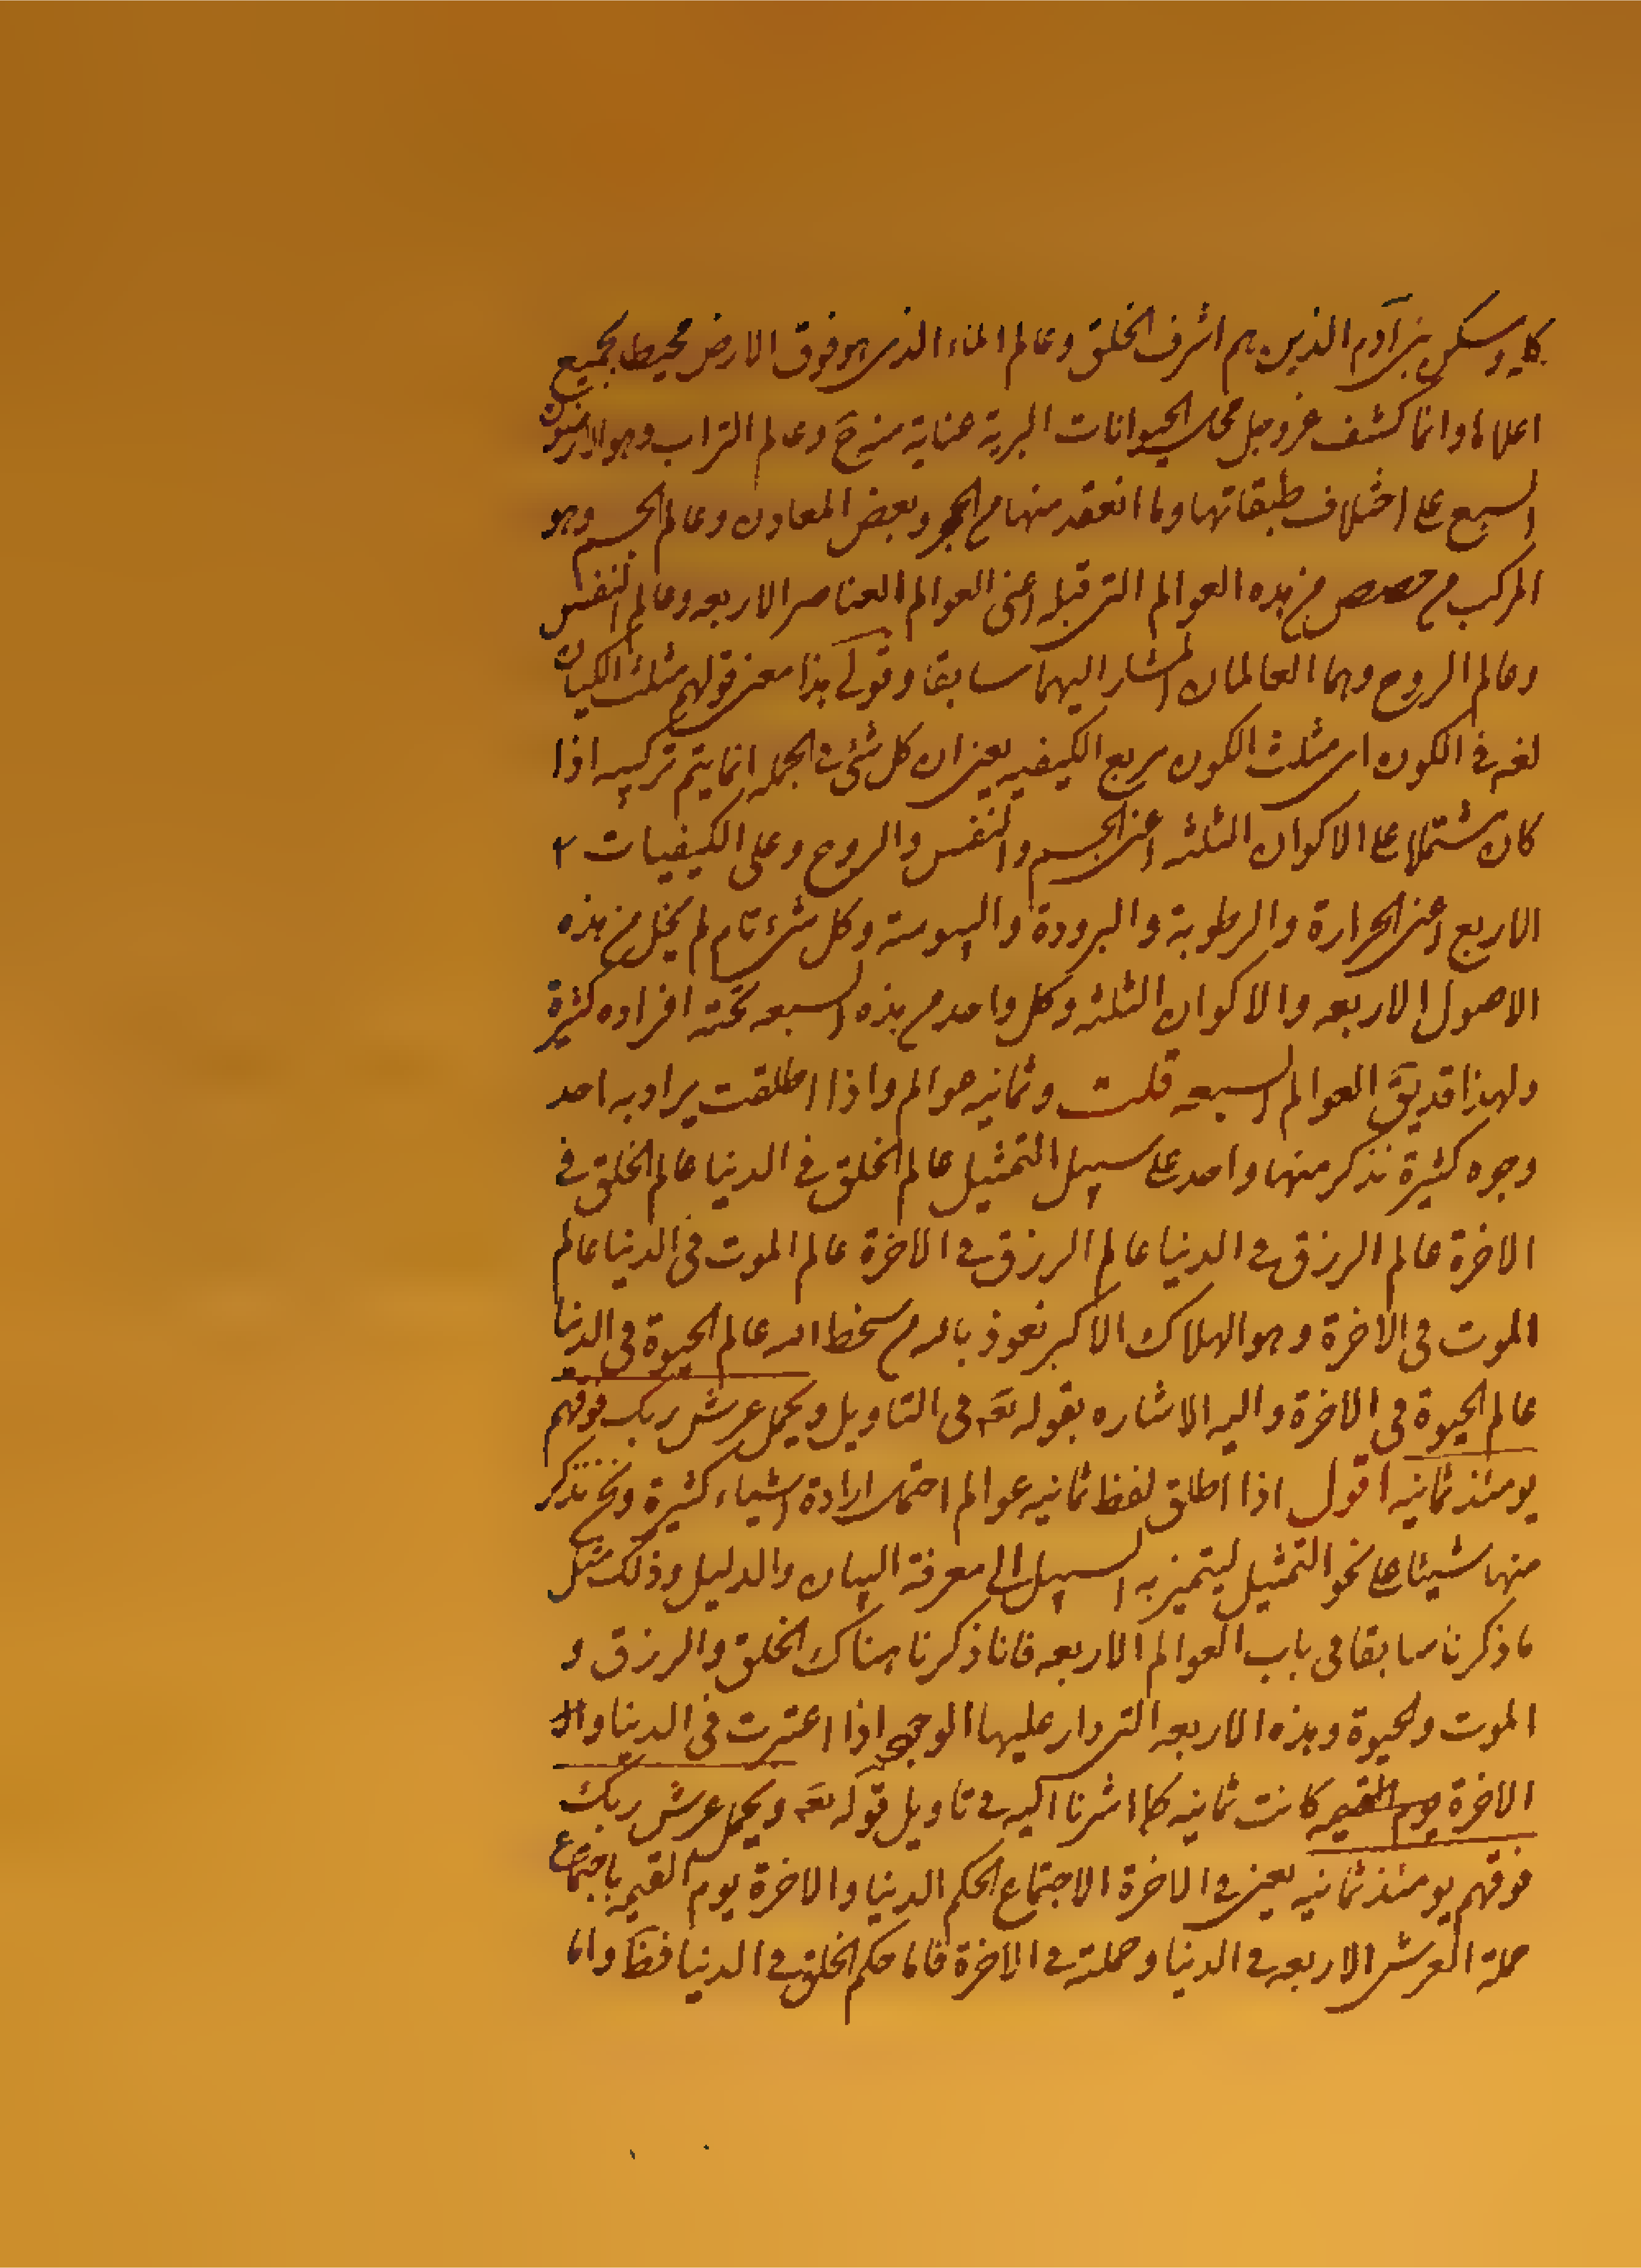 كله وسكنى بنى آدم الذين هم اشرف الخلق وعالم الماء الذى هو فوق الارض محيط بجميع
اعلاها وانما كشف عز وجل محال الحيوانات البرية عناية منه تع وعالم التراب وهو الارضون
السبع على اختلاف طبقاتها وما انعقد منها من الحجر وبعض المعادن وعالم الجسم وهو
المركب من حصص من هذه العوالم التى قبله اعنى العوالم العناصر الاربعه وعالم النفس
وعالم الروح وهما العالمان المشار اليهما سابقا وقولى هذا معنى قولهم مثلث الكيان
لغه فى الكون اى مثلث الكون مربع الكيفيه يعنى ان كل شئ فى الجمله انما يتم تركيبه اذا
كان مشتملا على الاكوان الثلثه اعنى الجسم والنفس والروح وعلى الكيفيات
الاربع اعنى الحرارة والرطوبة والبرودة واليبوسة وكل شئ تام لم يخل من هذه
الاصول الاربعه والاكوان الثلثه وكل واحد من هذه السبعه تحته افراده كثيرة
ولهذا قد يق العوالم السبعه قلت وثمانيه عوالم واذا اطلقت يراد به احد
وجوه كثيرة نذكر منها واحد على سبيل التمثيل عالم الخلق فى الدنيا عالم الخلق فى
الاخرة عالم الرزق فى الدنيا عالم الرزق فى الاخرة عالم الموت فى الدنيا عالم
الموت فى الاخرة وهو الهلاك الاكبر نعوذ بالله من سخط الله عالم الحيوة فى الدنيا
عالم الحيوة فى الاخرة واليه الاشاره بقوله تعه فى التاويل ويحمل عرش ربك فوقهم
يومئذ ثمانيه اقول اذا اطلق لفظ ثمانيه عوالم احتمل ارادة اشياء كثيرة ونحن نذكر
منها شيئا على نحو التمثيل ليتميز به السبيل الى معرفة البيان والدليل وذلك مثل
ما ذكرنا سابقا فى باب العوالم الاربعه فانا ذكرنا هناك الخلق والرزق و
الموت والحيوة وهذه الاربعه التى دار عليها الوجود اذا اعتبرت فى الدنيا والا
الاخرة يوم القيمه كانت ثمانيه كما اشرنا اليه فى تاويل قوله تعه ويحمل عرش ربك
فوقهم يومئذ ثمانيه يعنى فى الاخرة الاجتماع الحكم الدنيا والاخرة يوم القيمه باجتماع
حملة العرش الاربعه فى الدنيا وحملته فى الاخرة فاما حكم الخلق فى الدنيا فظ واما